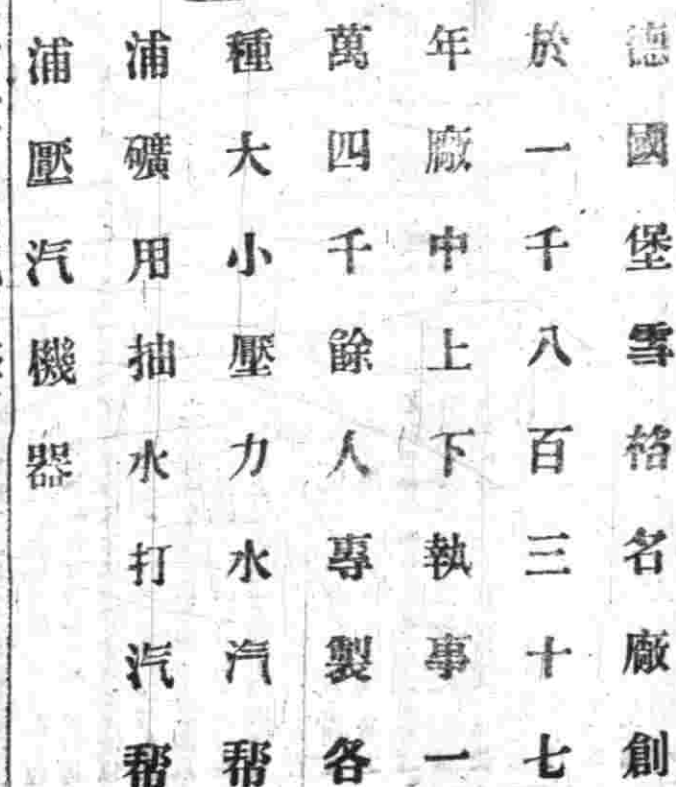 德國堡雪格名廠創
於一千八百三十七
年廠中上下執事一
萬四千餘人專製各
種大小壓力水汽幫
浦礦用抽水打汽幫
浦壓汽機器